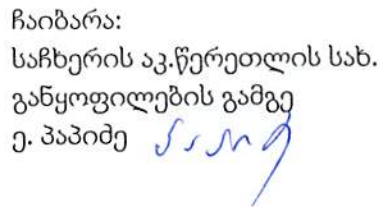 ჩაიბარა:
საჩხერის აკ.წერეთლის სახ.
განყოფილების გამგე
ე. პაპიძე